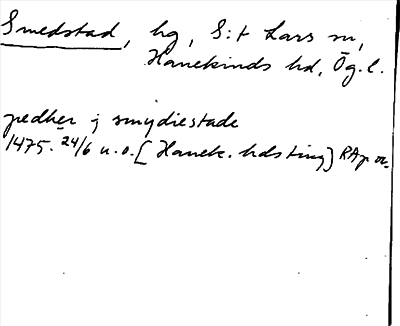 Smedstad, hg, S:t Lars sn,
Hanekinds hd, Ög. l.
pedher j smydiestade
1475. 24/6 u.o. [Hanek. hdsting] RAp or.